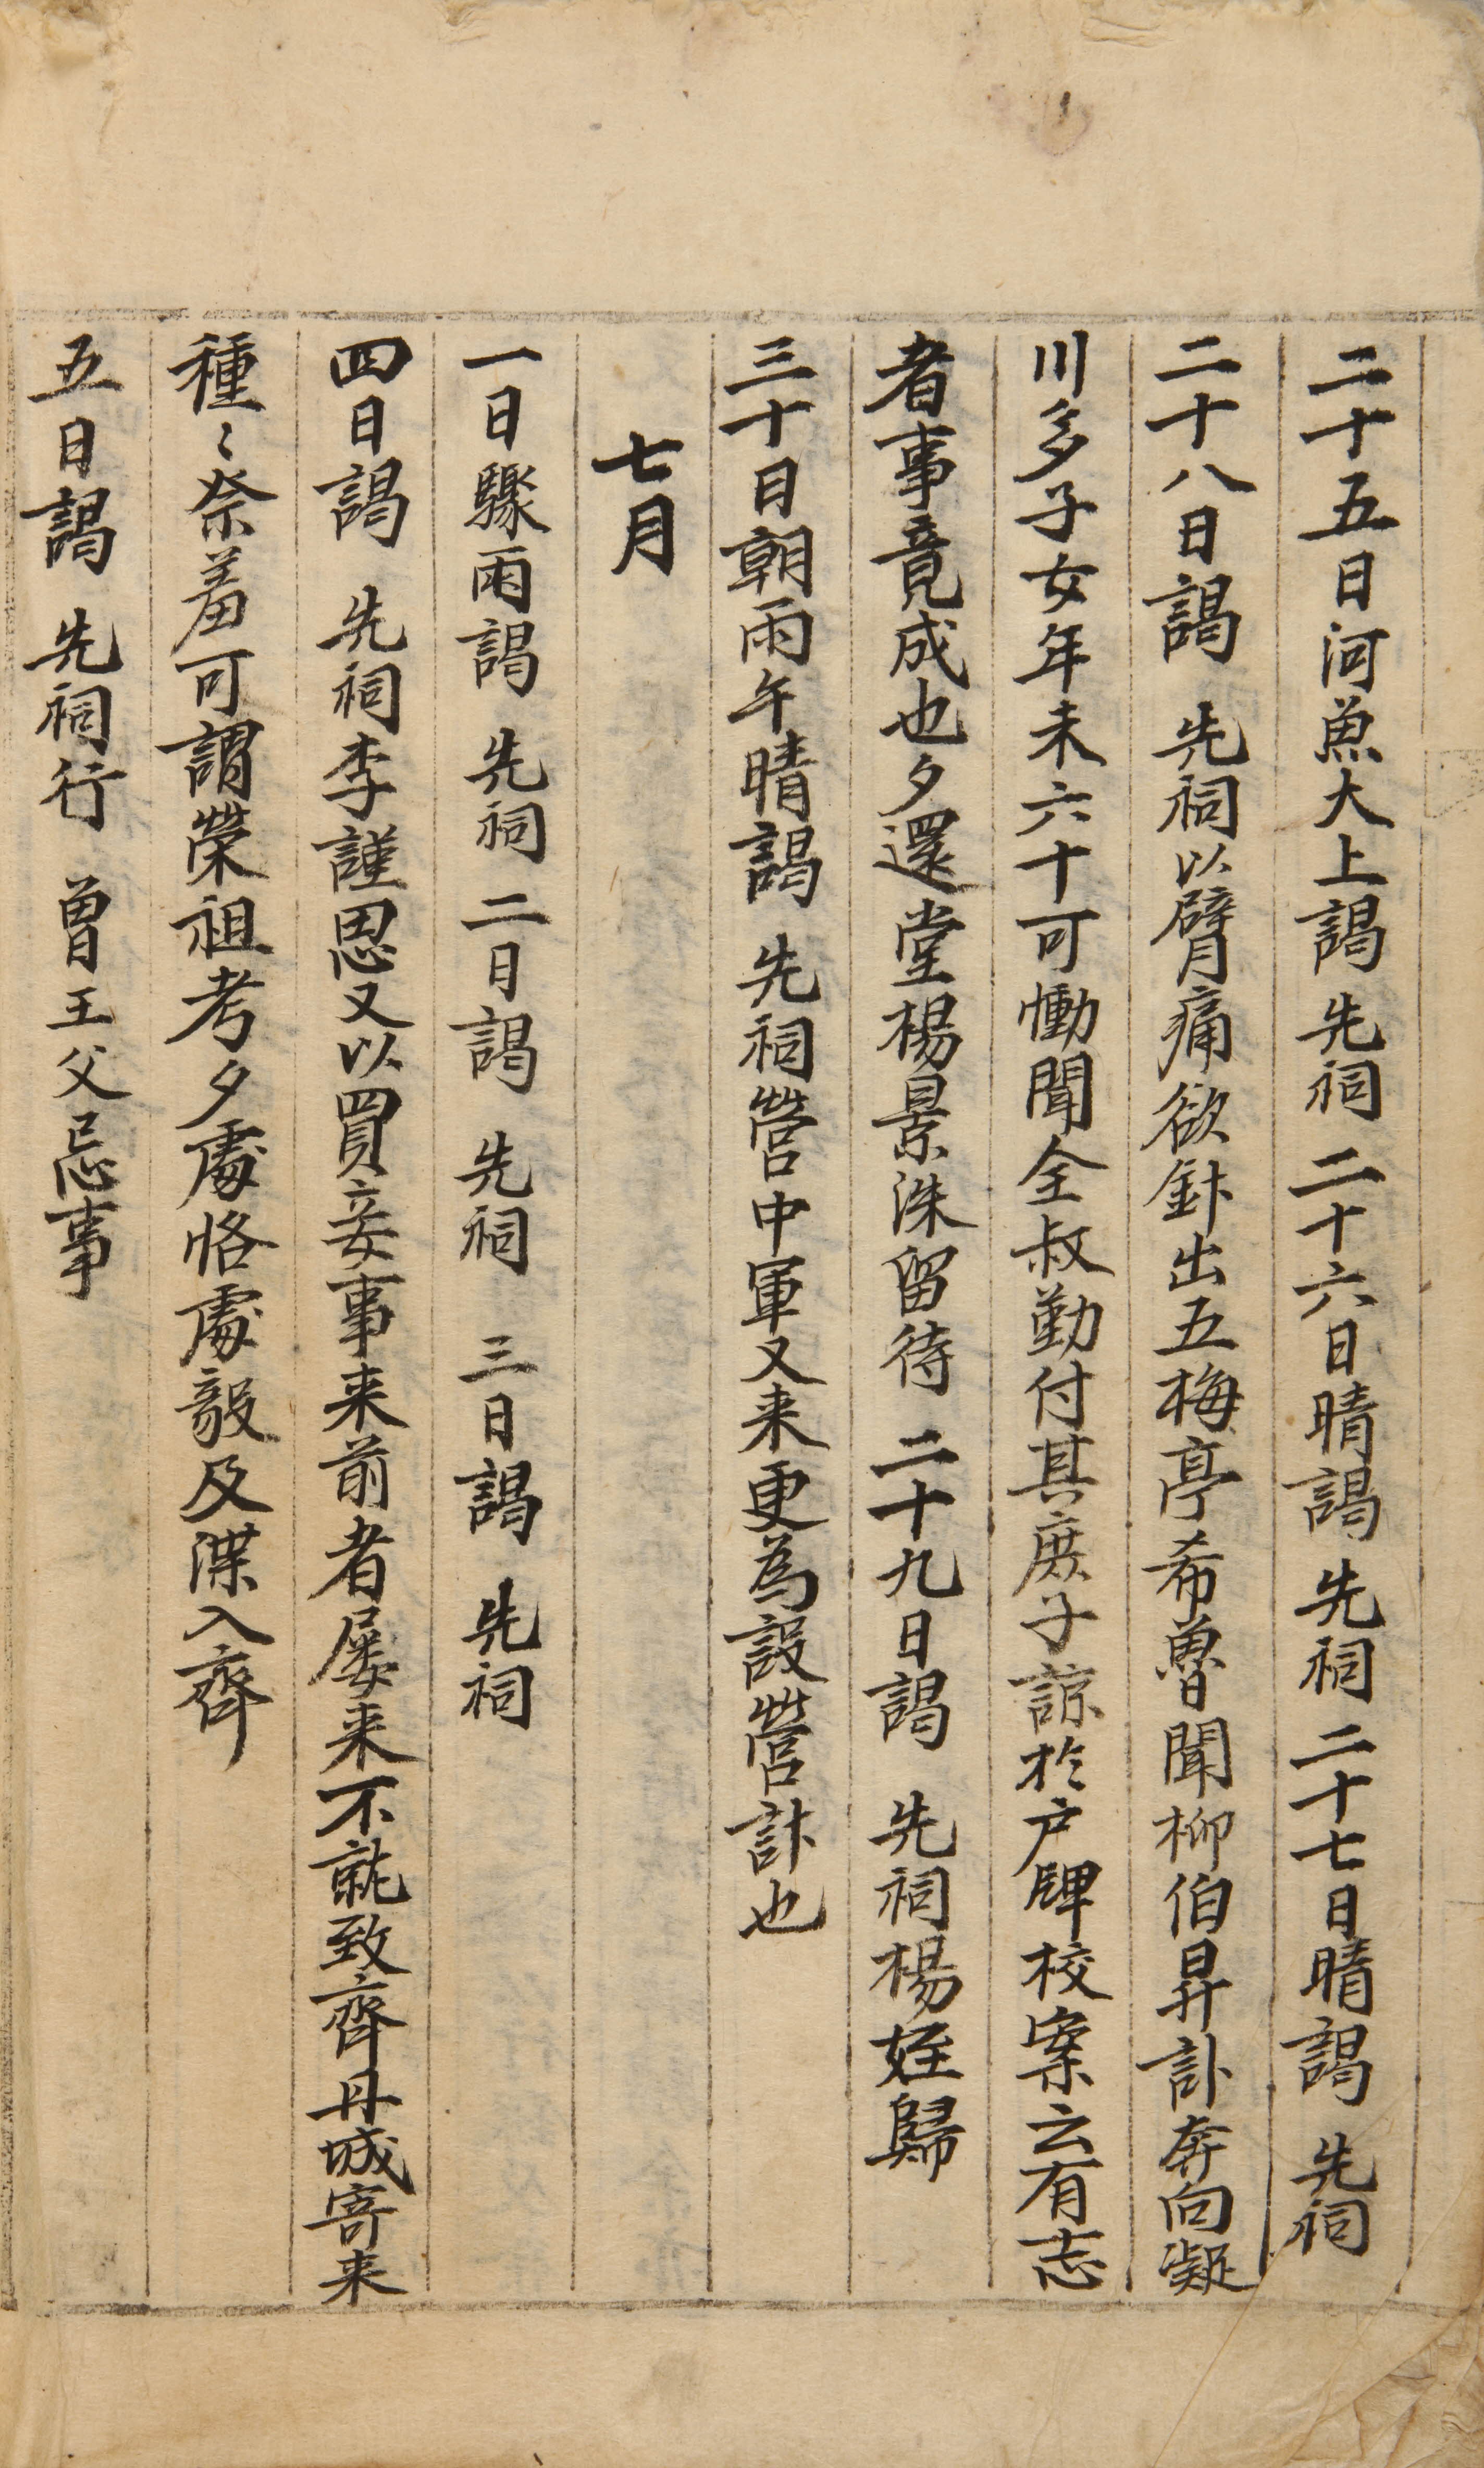 二十五日河魚大上謁 先祠 二十六日晴謁 先祠 二十七日晴謁 先祠
二十八日謁 先祠以臂痛欲針出五梅亭希魯聞柳伯昇訃奔向凝
川多子女年未六十可慟聞全叔勤付其庶子諒於戶牌校案云有志
者事竟成也夕還堂楊景洙留待 二十九日謁 先祠楊姪歸
三十日朝雨午晴謁 先祠營中軍又来更為設營計也
七月
一日驟雨謁 先祠 二日謁 先祠 三日謁 先祠
四日謁 先祠李謹思又以買妾事来前者屡来不就致齊丹城寄来
種〻祭羞可謂榮祖考夕處恪處毅及渫入齊
五日謁 先祠行 曾王父忌事